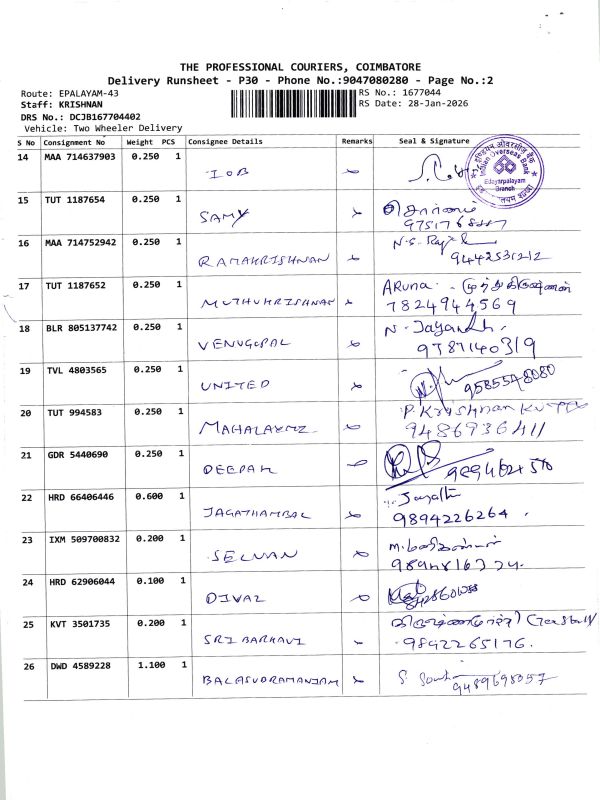 THE PROFESSIONAL COURIERS, COIMBATORE
Delivery Runsheet - P30 - Phone No.:9047080280 - Page No.:2
Route: EPALAYAM-43 RS No.: 1677044
Staff: KRISHNAN RS Date: 28-Jan-2026
DRS No.: DCJB167704402
Vehicle: Two Wheeler Delivery
S No Consignment No Weight PCS Consignee Details Remarks Seal & Signature
14 MAA 714637903 0.250 1 IOB
इण्डियन ओवरसीज़ बैंक
Indian Overseas Bank
Edayarpalayam
Branch
15 TUT 1187654 0.250 1 SAMY
16 MAA 714752942 0.250 1 RAMAKRISHNAN N.S. 9442531212
17 TUT 1187652 0.250 1 MUTHUKRISHNAN ARUNA. முத்துகிருஷ்ணன்
7824944569
18 BLR 805137742 0.250 1 VENUGOPAL N. Jayanth.
9787140319
19 TVL 4803565 0.250 1 UNITED 9585548080
20 TUT 994583 0.250 1 MAHALAXMI P. Krishnan Kutty
9486936411
21 GDR 5440690 0.250 1 DEEPAK
22 HRD 66406446 0.600 1 JAGATHAMBAL
9894226264.
23 IXM 509700832 0.200 1 SELVAN
24 HRD 62906044 0.100 1
25 KVT 3501735 0.200 1 SRI BARKAVI
9842265176.
26 DWD 4589228 1.100 1 BALASUBRAMANIAM S.
9489698057